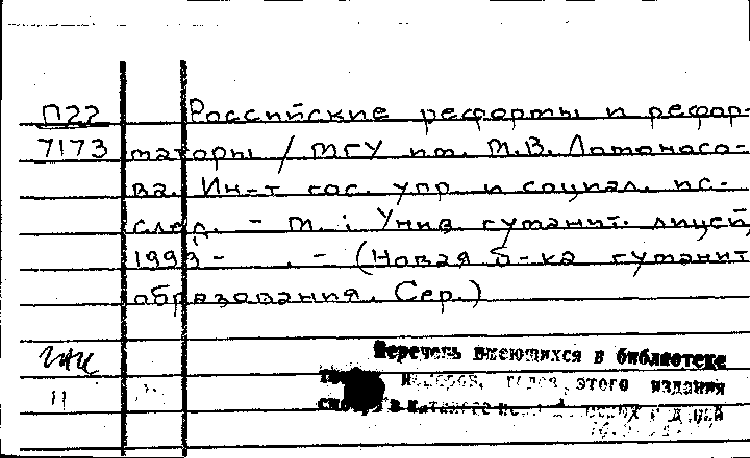 П22 Российские реформы и рефор-
7173 маторы / МГУ им. М.В. Ломоносо-
ва. Ин-т гос. упр. и социал. ис-
след. - М. : Унив. гуманит. лицей,
1993- . - (Новая б-ка гуманит.
образования. Сер.)
Перечень имеющихся в библиотеке
этого издания
смотри в каталоге